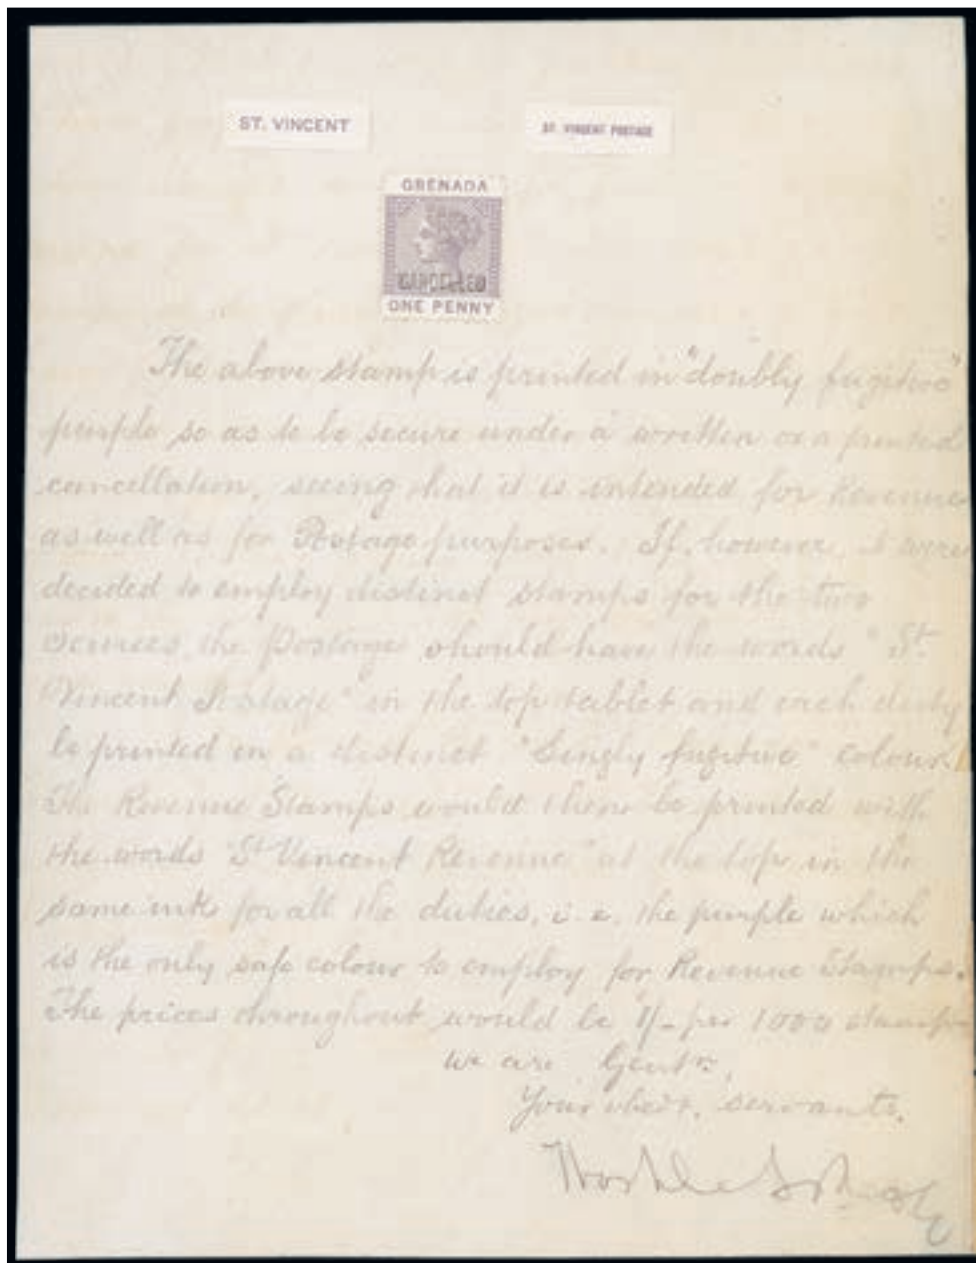 ST. VINCENT
ST. VINCENT POSTAGE
GRENADA
CANCELLED
ONE PENNY
The above stamp is printed in "doubly fugitive"
purple so as to be secure under a written or a printed
cancellation, seeing that it is intended for Revenue
as well as for Postage purposes. If, however, it were
decided to employ distinct stamps for the two
services, the Postage should have the words "St.
Vincent Postage" in the top tablet and each duty
be printed in a distinct "Singly fugitive" colour.
The Revenue Stamps would then be printed with
the words "St Vincent Revenue" at the top in the
same ink for all the duties, i.e. the purple which
is the only safe colour to employ for Revenue Stamps.
The prices throughout would be 1/- per 1000 stamps
we are Gentn,
Your obedt. servants.